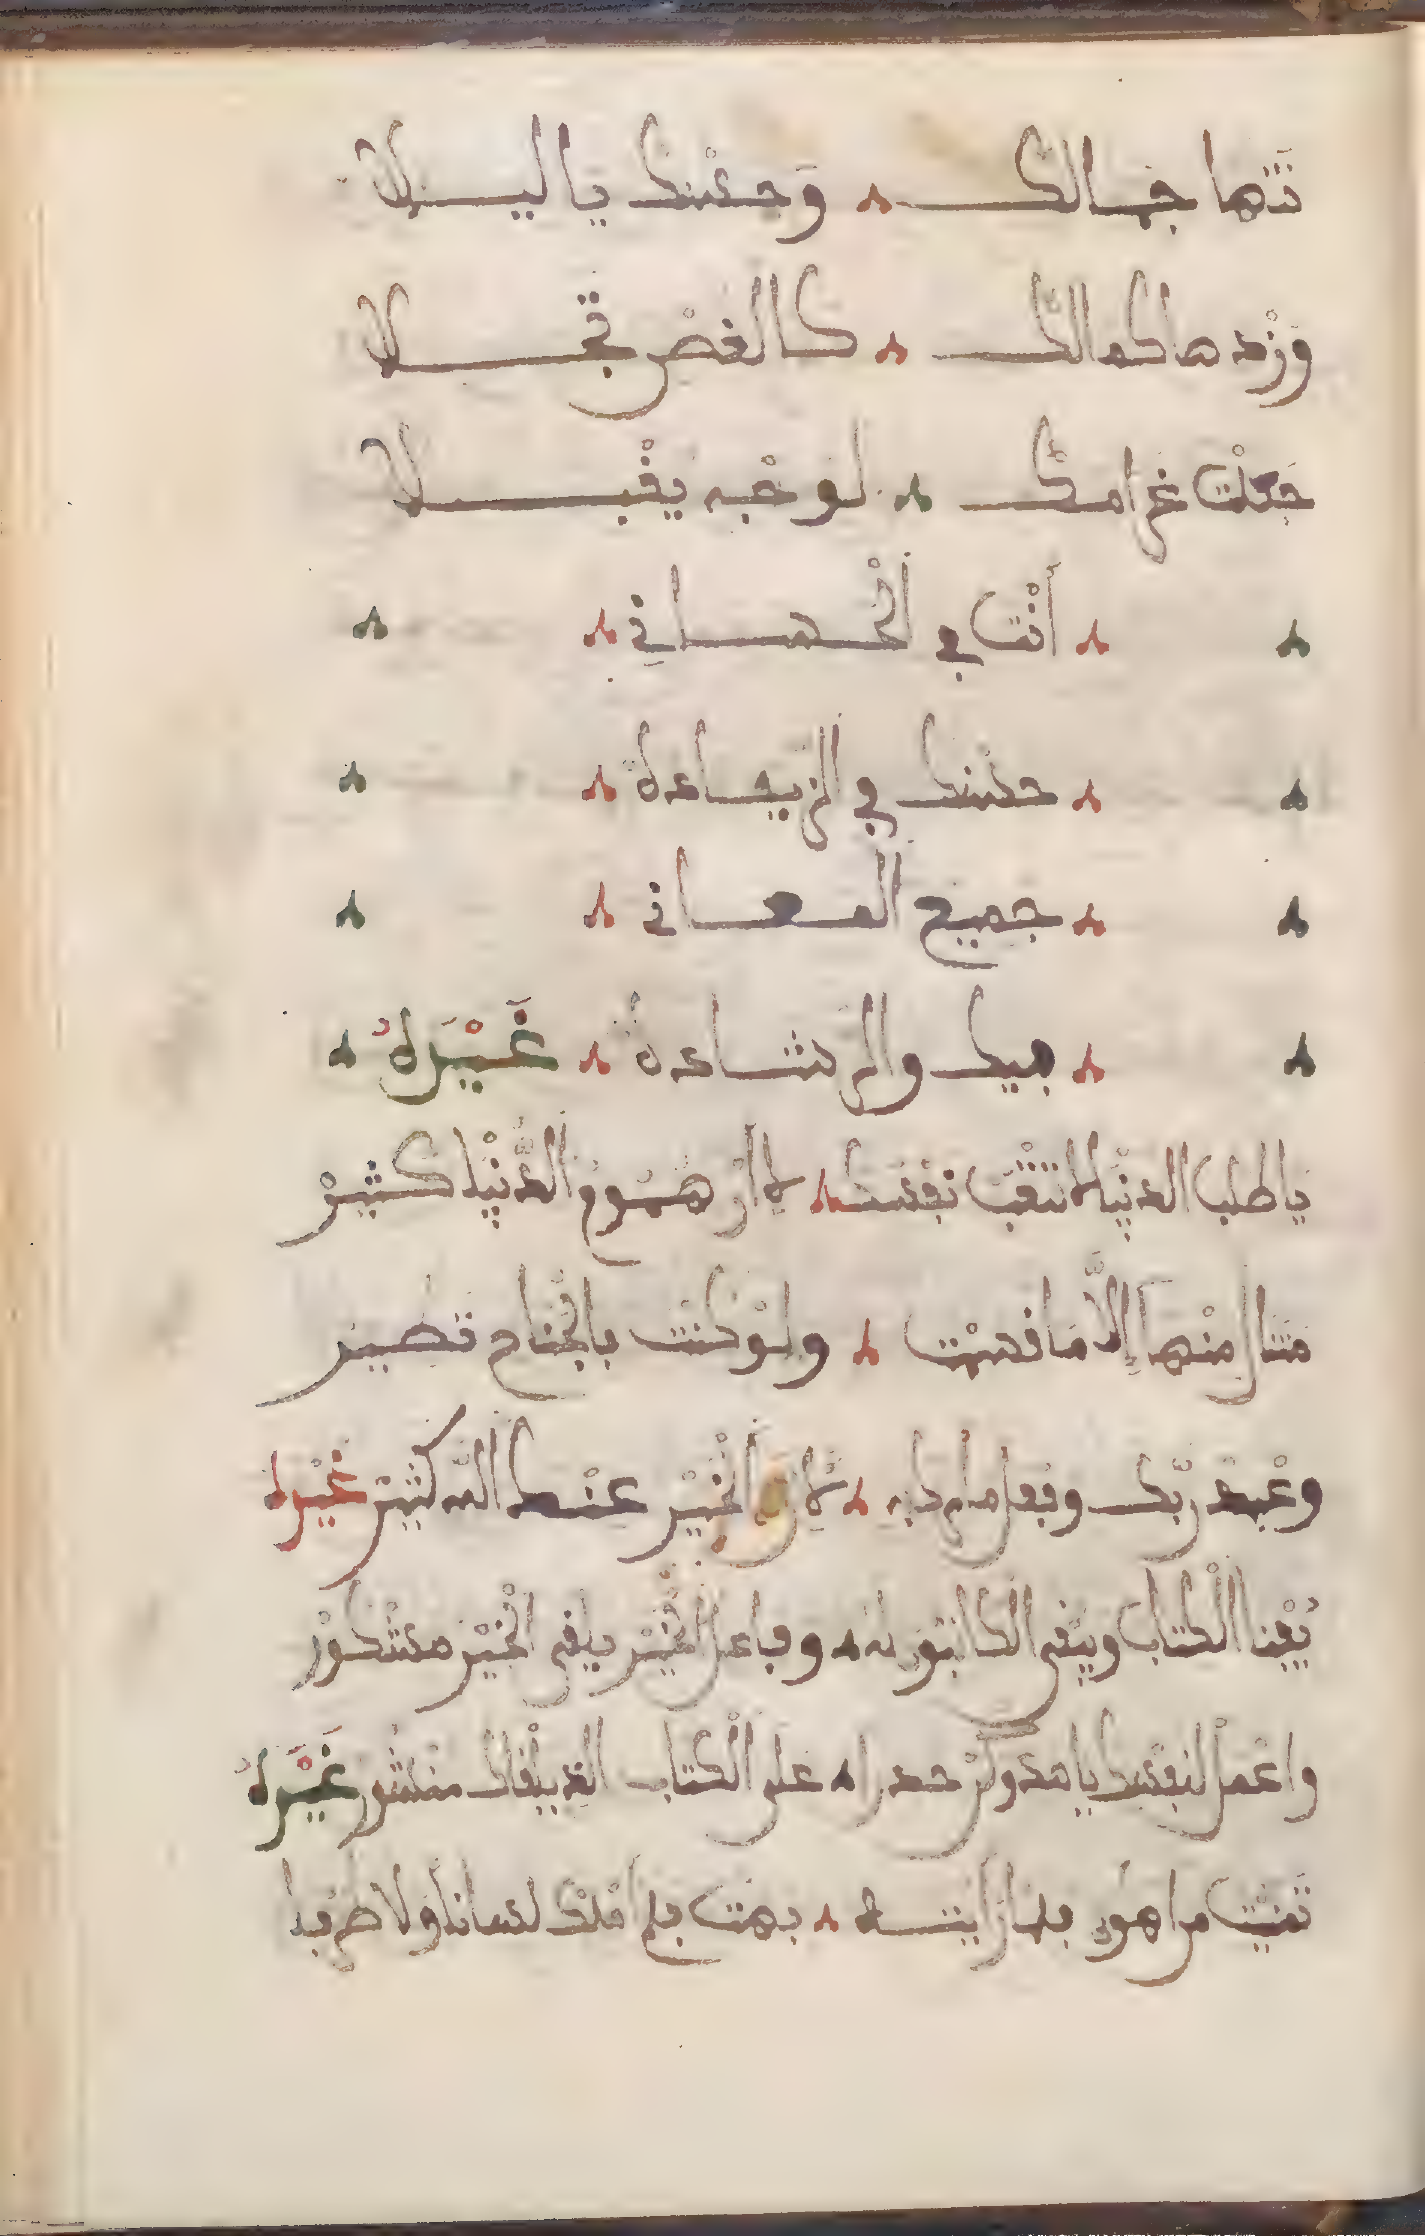 تَتَها جمالك ∴ وَحسنك يا ليلا
وَزد هاكمالك ∴ كالغصن
جعلت غرامك ∴ لوجه يقبلا
أنْت في الحسانِي
حسنك في الزيادة
جميع المعاني
فيك والرشادة ∴ غَيْرَهُ
يا طلب الدنْيا لا تتْعَب نفسك ∴ لِأن هَمُومْ الدُّنْيا كثيرْ
مَتنال منْها إِلاَّ مَا قسمْت ∴ ولوْ كنْت بالجْناح تطير
وعْبدْ ربّك وفعل ∴ لِأن الْخيْر عنْد الله كثيرْ غيْره
يُفْنا الْكتاب ويبْقى الكاتبون له ∴ وفاعل الْخيْر يلقى الخيْر مشْكورْ
واعْمل لنفسك يا هذ وكنْ حذرا ∴ على الْكتاب الذي يلْقاك منْشور غَيْرَهُ
تَمنيْت من اهوى فلما رأيته ∴ بهت فلم املكْ لسانا ولا طرفا